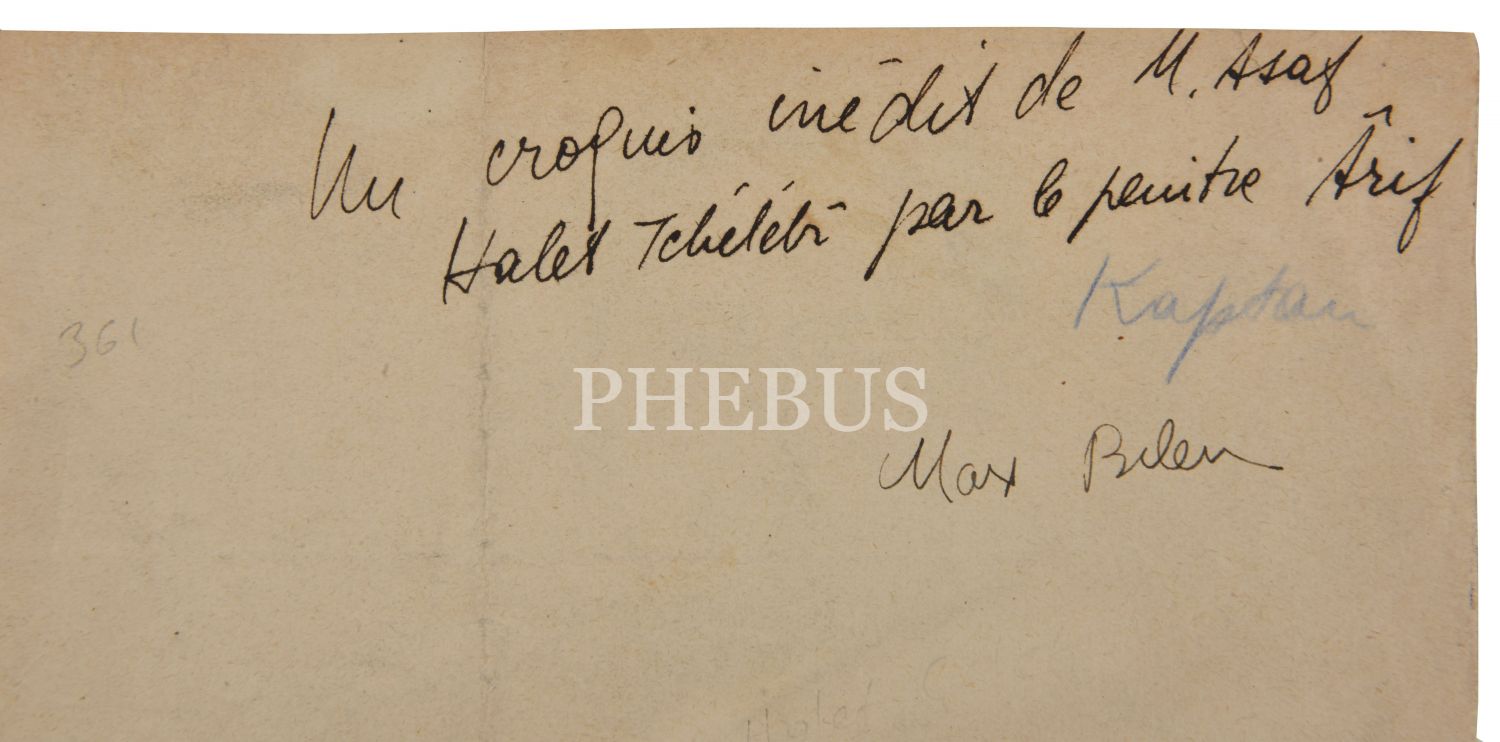 Un croquis inédit de M. Asaf
Halet Tchélébi par le peintre Ârif
Kaptan
361
PHEBUS
Max Bilen